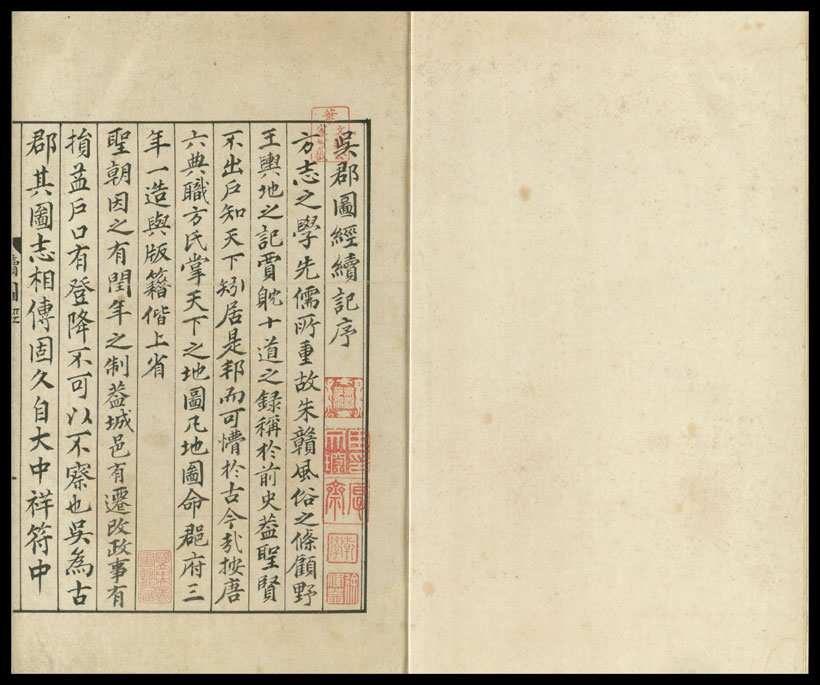 吳郡圖經續記序
方志之學先儒所重故朱贛風俗之條顧野
王輿地之記賈耽十道之録稱於前史葢聖賢
不出戶知天下矧居是邦而可懵於古今哉按唐
六典職方氏掌天下之地圖凡地圖命郡府三
年一造與版籍偕上省
聖朝因之有閏年之制葢城邑有遷改政事有
損益戶口有登降不可以不察也吳為古
郡其圖志相傳固久自大中祥符中